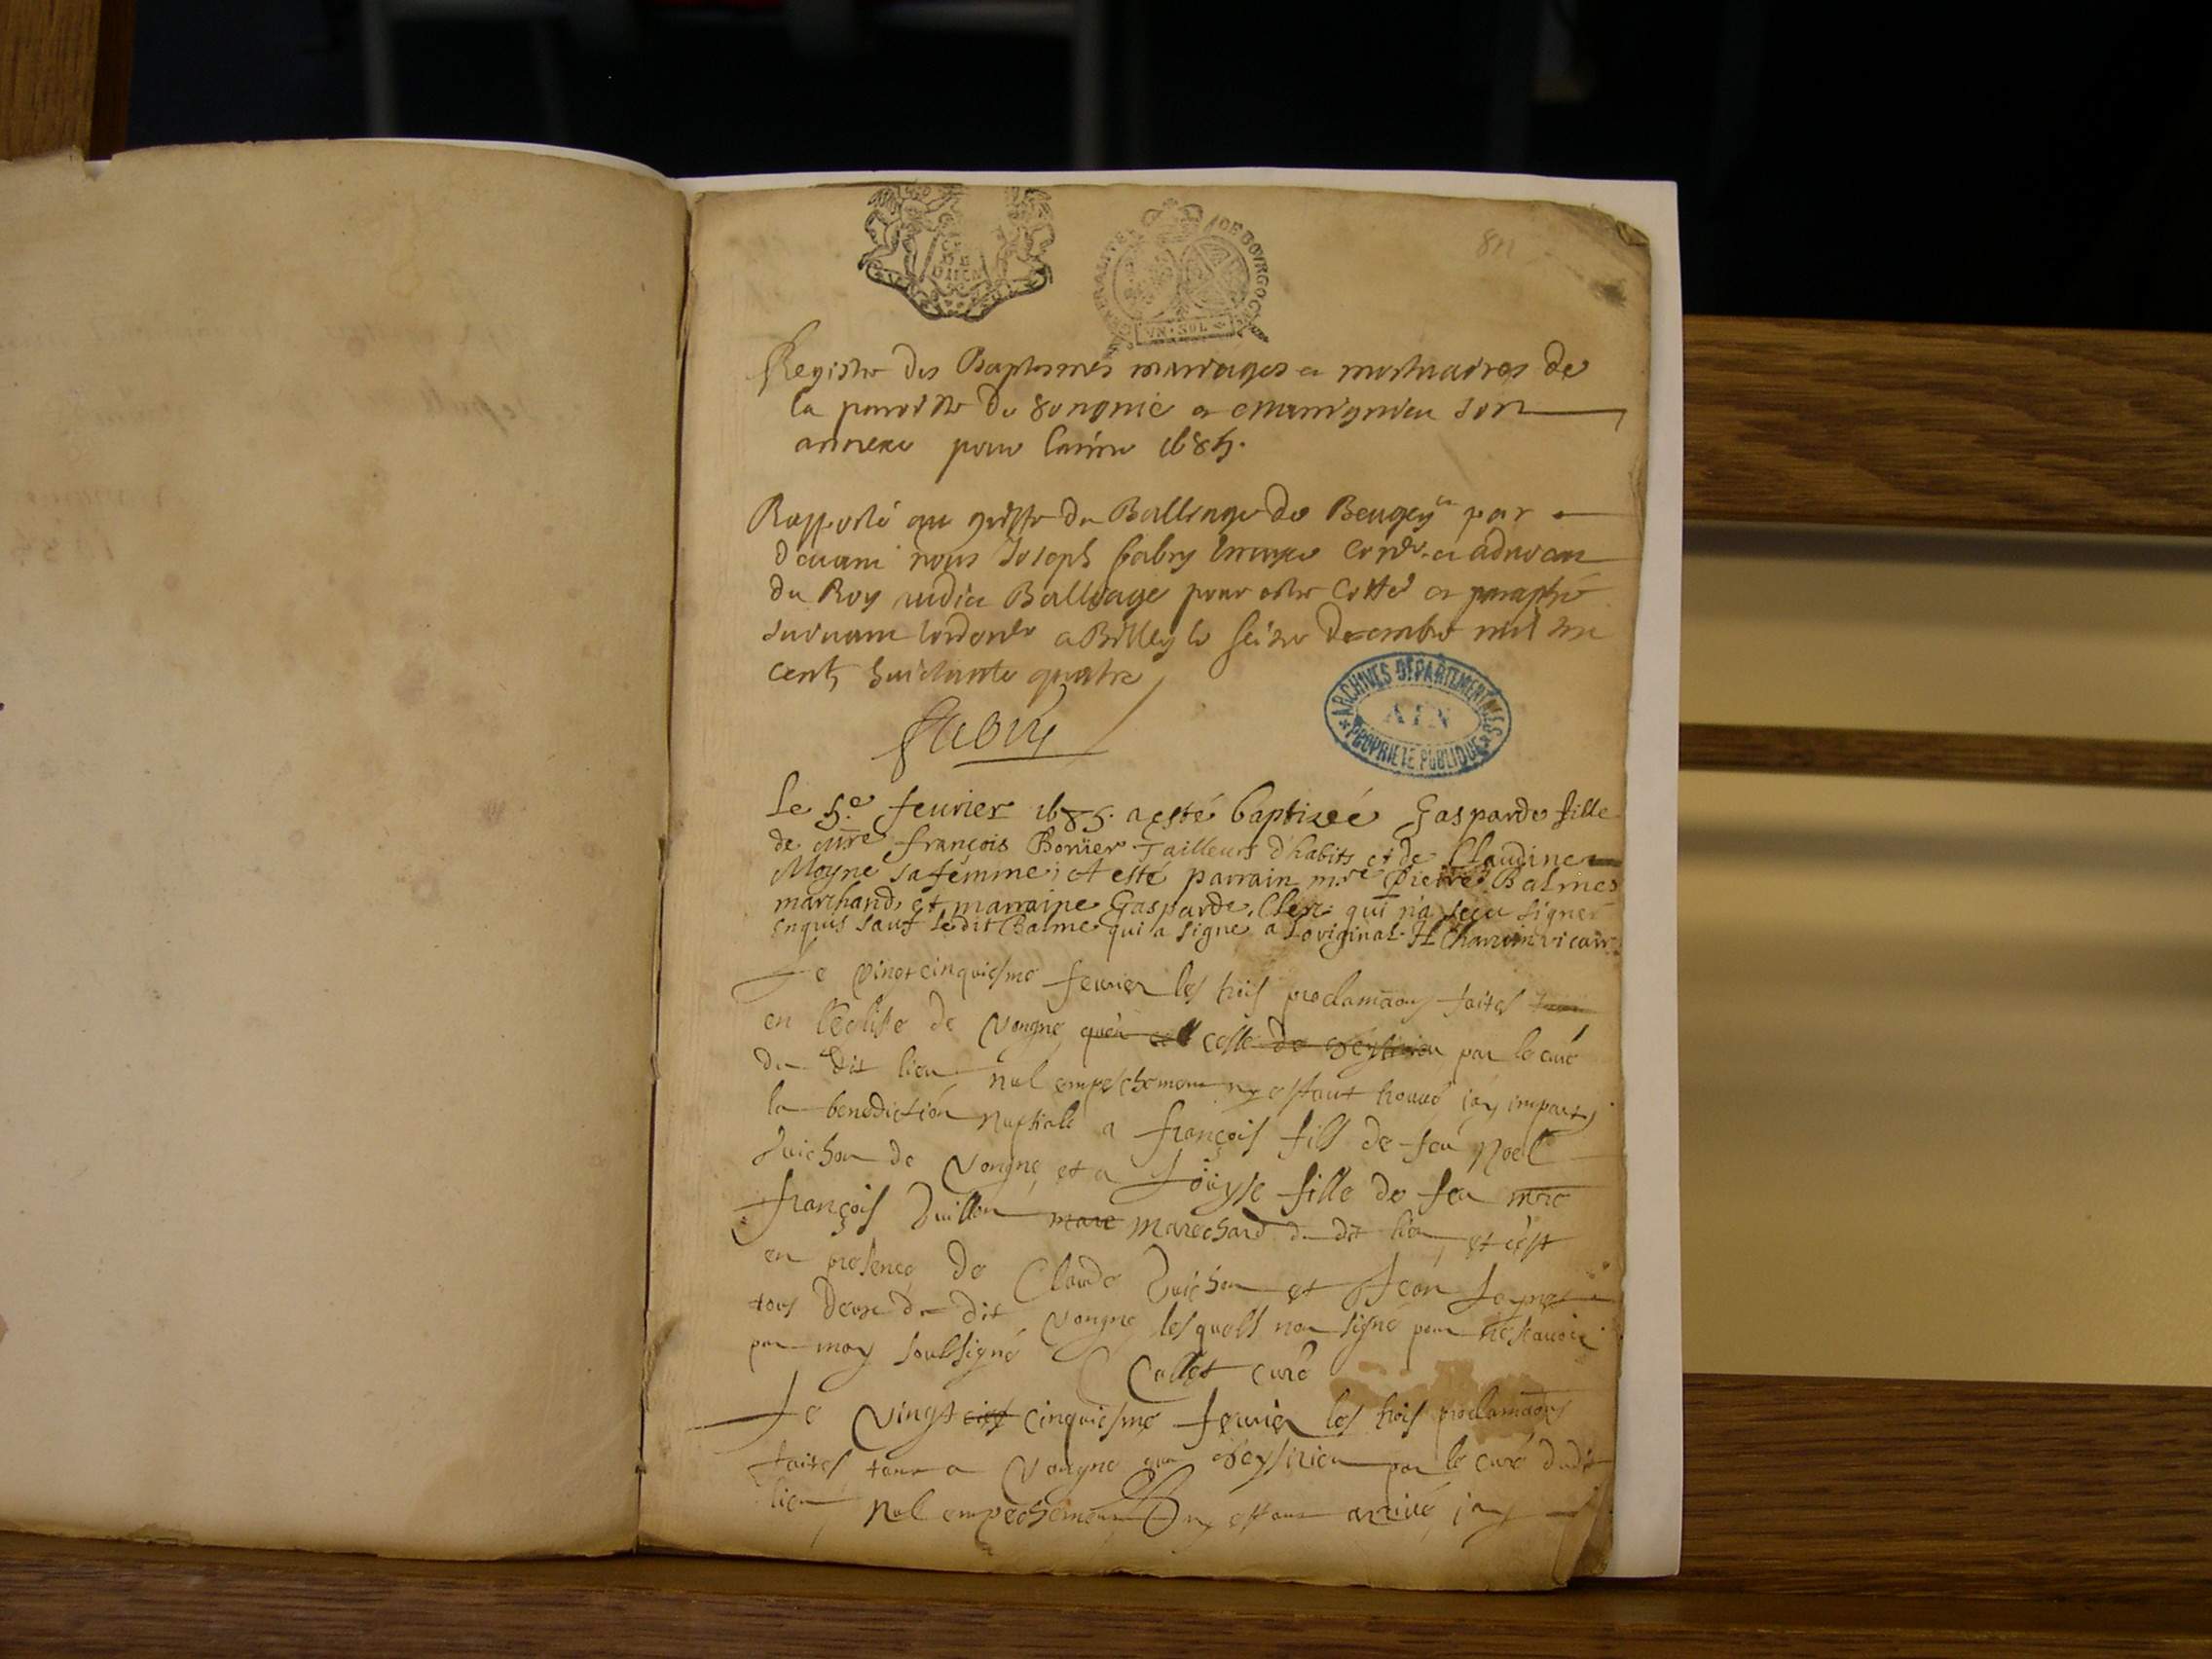 GENERALITE DE BOVRGOGNE
VN·SOL
811
Registre des Baptesmes mariages et mortuaires de
la paroisse de Vongnie et son
annexe pour lannee 1685.
Rapporté au greffe du Balliage de Beugey par
devant nous Joseph fabry et advocat
du Roy audict Balliage pour estre Cotté et paraphé
suivant a Belley le seize decembre mil six
cents huictante quatre
fabry
ARCHIVES DÉPARTEMENTALES
AIN
PROPRIÉTÉ PUBLIQUE
Le 5.e feurier 1685. a esté baptizéé Gasparde fille
de françois Bonïer Tailleurs d'habits et de Claudine
Moyne sa fémme; A esté parrain mre pierre Balmes
marchand, et marraine Gasparde Clerc qui n'a sceu signer
enquis sauf ledit Balme qui a signe a Loriginal H Charvin vicair
Le vingtcinquiesme feurier les trois proclamaons faites
en l'eglise de Vongne celle de par le curé
du dit lieu, nul empeschement n'y estant trouvé jay imparty
la benediction nuptiale a françois fils de feu Noel
Guichon de Vongne, et a Loüyse fille de feu mre
françois Guillon mare marechard du dit lieu, et c'est
en presence de Claude Guichon et Jean
tous deux du dit Vongne lesquels non signe pour ne scauoir
par moy soubsigné Collet curé
Le Vingt cinquiesme feurier les trois proclamaons
faites tant a Vongne qua Ceyzirieu par le curé dudit
lieu, Nul empechement n'y estant arrivé, jay